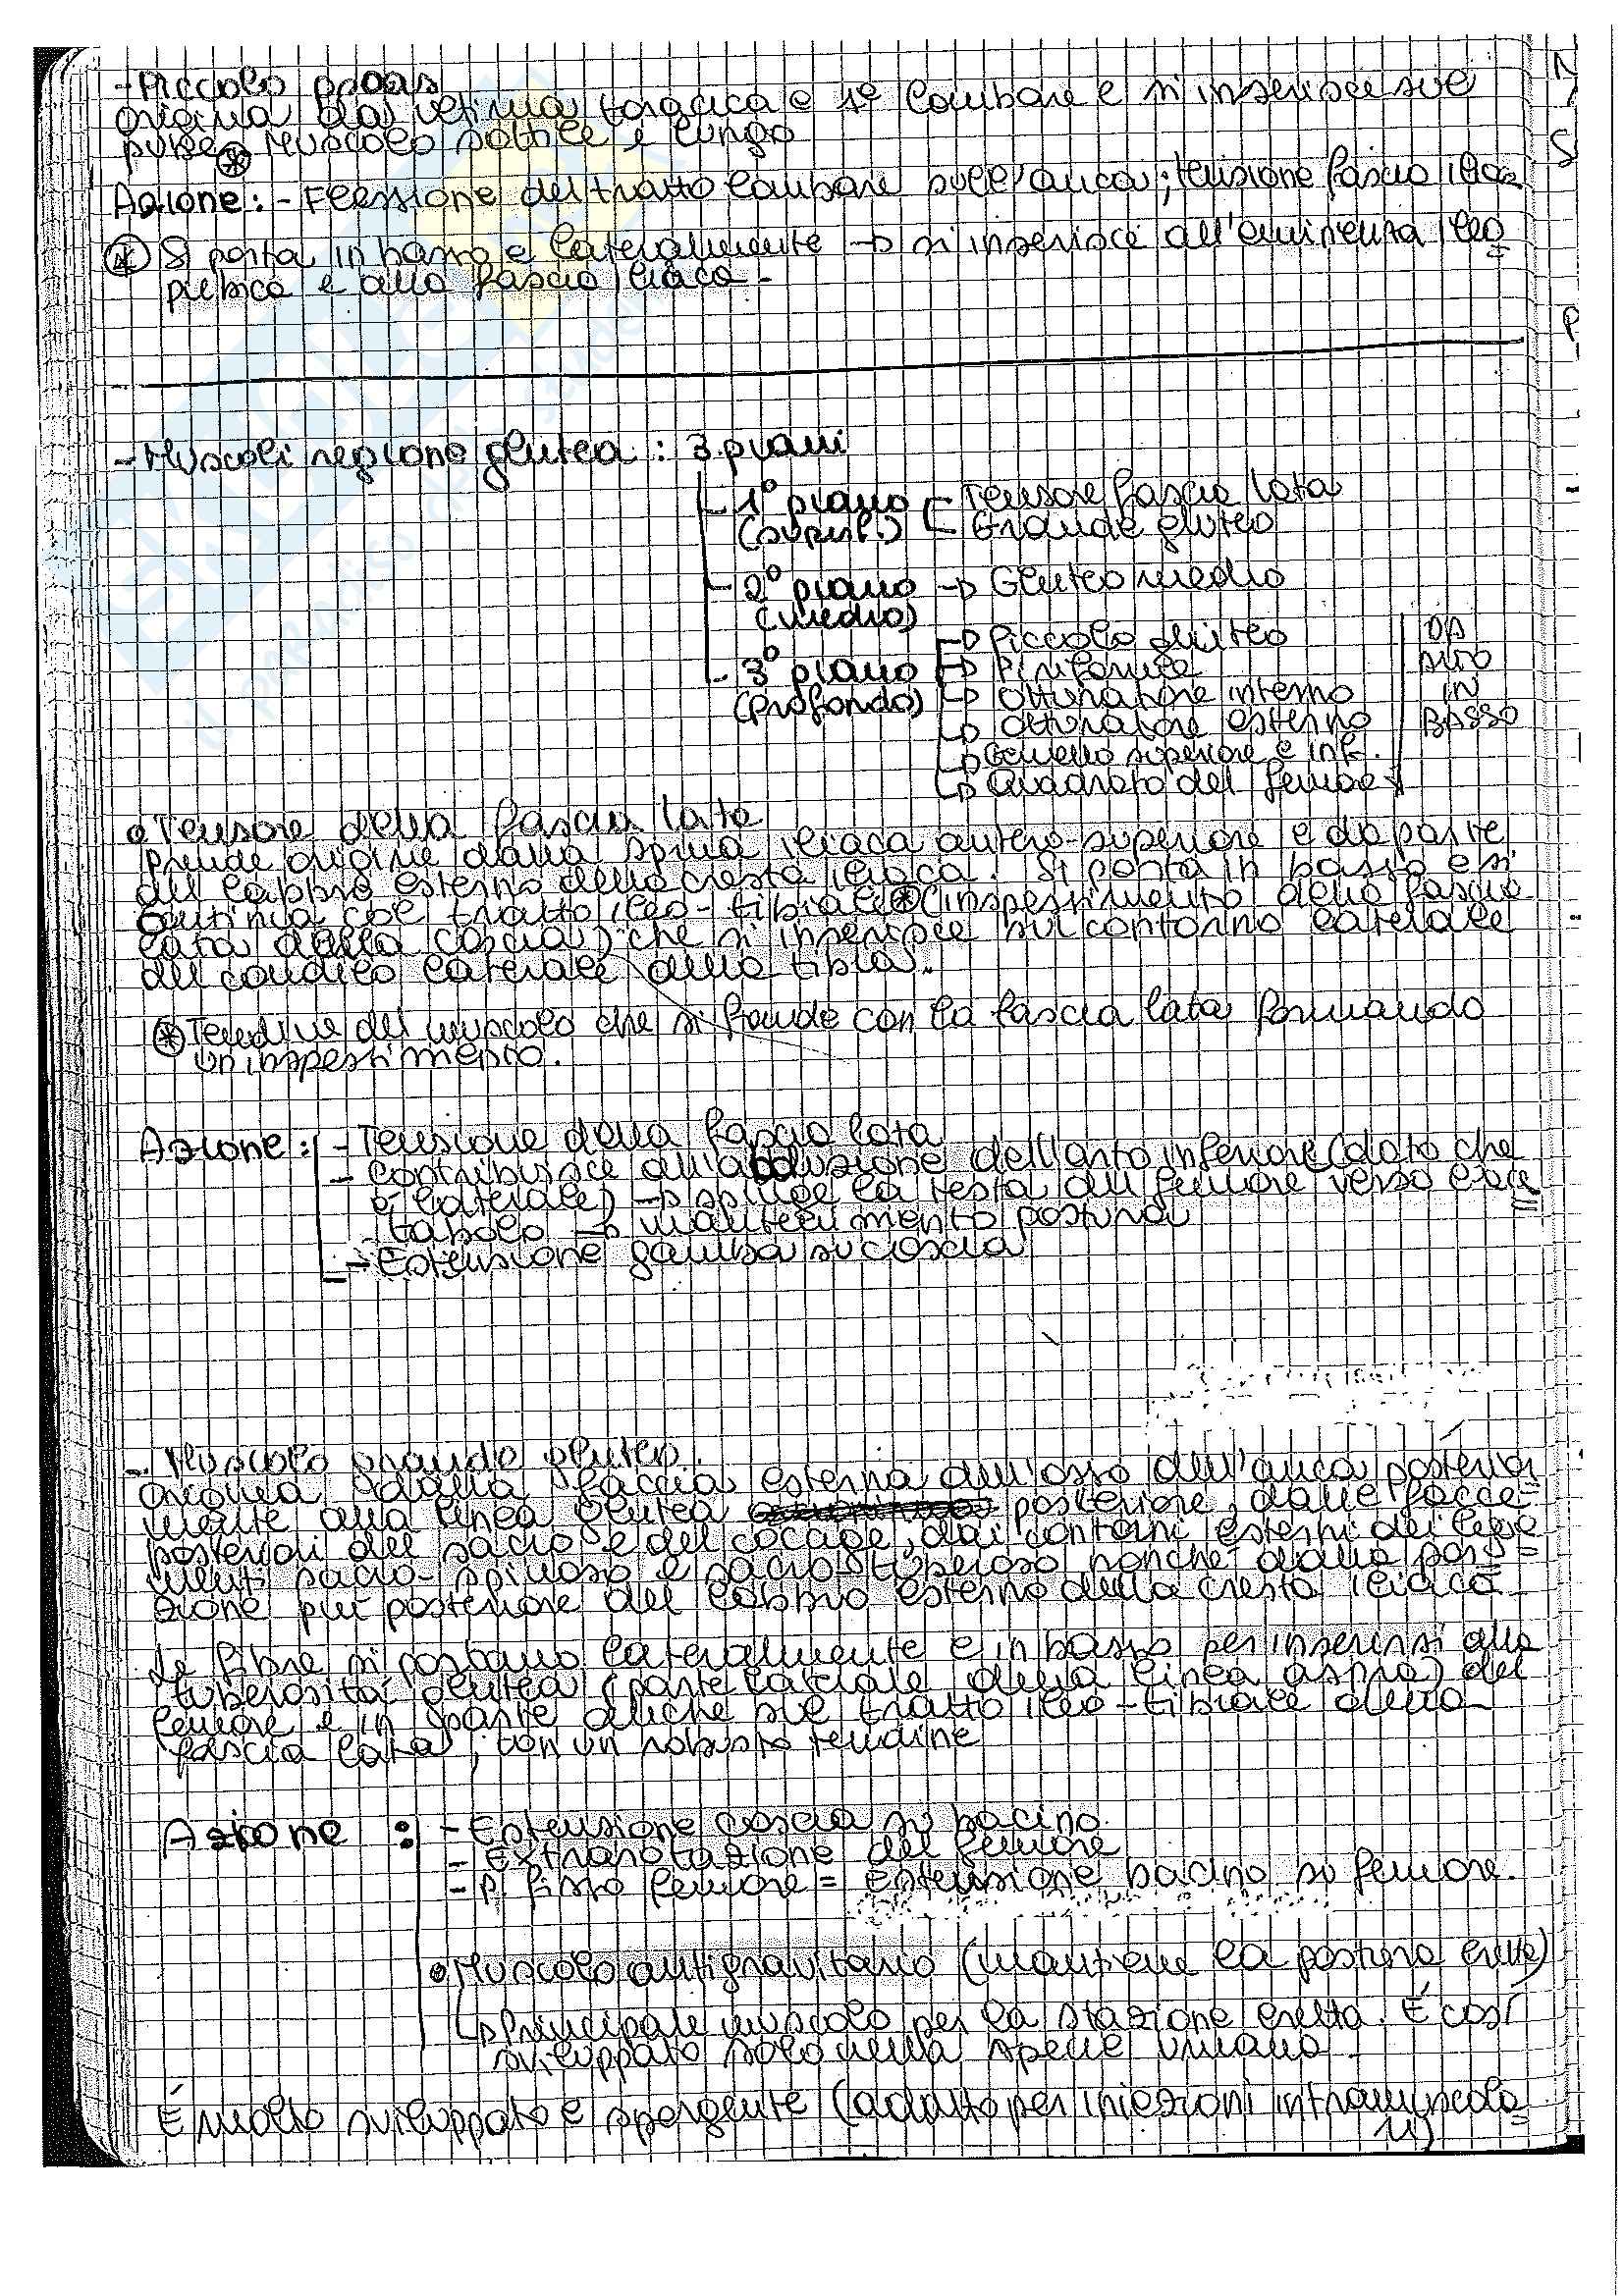 - Piccolo psoas
origina da ultima toracica e 1ª lombare e si inserisce sul
pube * Muscolo sottile e lungo
Azione: - Flessione del tratto lombare sull'anca; tensione fascia iliaca
* Si porta in basso e lateralmente → si inserisce all'eminenza ileo=
pubica e alla fascia iliaca -
- Muscoli regione glutea : 3 piani
- 1° piano (superf.) - Tensore fascia lata
- Grande gluteo
- 2° piano (medio) → Gluteo medio
- 3° piano (profondo) → Piccolo gluteo
→ Piriforme
→ Otturatore interno
→ Otturatore esterno
→ Gemello superiore e inf.
→ Quadrato del femore
DA
ALTO
IN
BASSO
• Tensore della fascia lata
prende origine dalla spina iliaca antero-superiore e da parte
del labbro esterno della cresta iliaca. Si porta in basso e si
continua col tratto ileo-tibiale * (inspessimento della fascia
lata della coscia) che si inserisce sul contorno laterale
del condilo laterale della tibia.
* Tendine del muscolo che si fonde con la fascia lata formando
un inspessimento.
Azione : - Tensione della fascia lata
- Contribuisce all'abduzione dell'arto inferiore (dato che
è laterale) → spinge la testa del femore verso l'ace=
tabolo → mantenimento postura
→ Estensione gamba su coscia
- Muscolo grande gluteo.
origina dalla faccia esterna dell'osso dell'anca posterior
mente alla linea glutea posteriore, dalle facce
posteriori del sacro e del coccige, dai contorni esterni dei lega
menti sacro-spinoso e sacro-tuberoso nonché dalla por=
zione più posteriore del labbro esterno della cresta iliaca.
Le fibre si portano lateralmente e in basso per inserirsi alla
tuberosità glutea (parte laterale della linea aspra) del
femore e in parte anche sul tratto ileo-tibiale della
fascia lata, con un robusto tendine
Azione : - Estensione coscia su bacino.
- Extrarotazione del femore
- P. fisso femore = Estensione bacino su femore.
• Muscolo antigravitario (mantiene la postura eretta)
↳ Principale muscolo per la stazione eretta. É così
sviluppato solo nella specie umana.
É molto sviluppato e sporgente (adatto per iniezioni intramuscola=